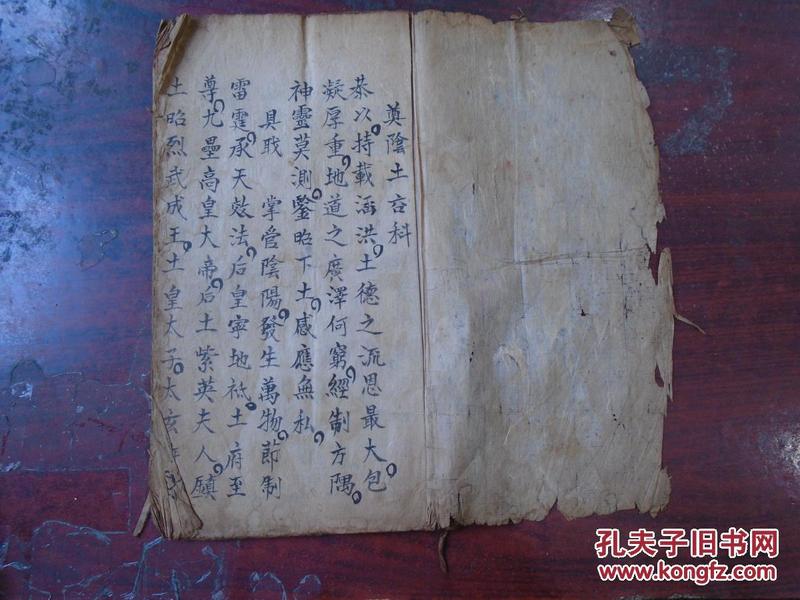 奠陰土古科
恭以持載涵洪土德之流恩最大包
凝厚重地道之廣澤何窮經制方隅
神靈莫測鑒昭下土感應無私
具戢 掌管陰陽發生萬物節制
雷霆承天效法后皇寧地祇土府至
尊九壘高皇大帝后土紫英夫人鎮
土昭烈武成王土皇太子太玄
孔夫子旧书网
www.kongfz.com